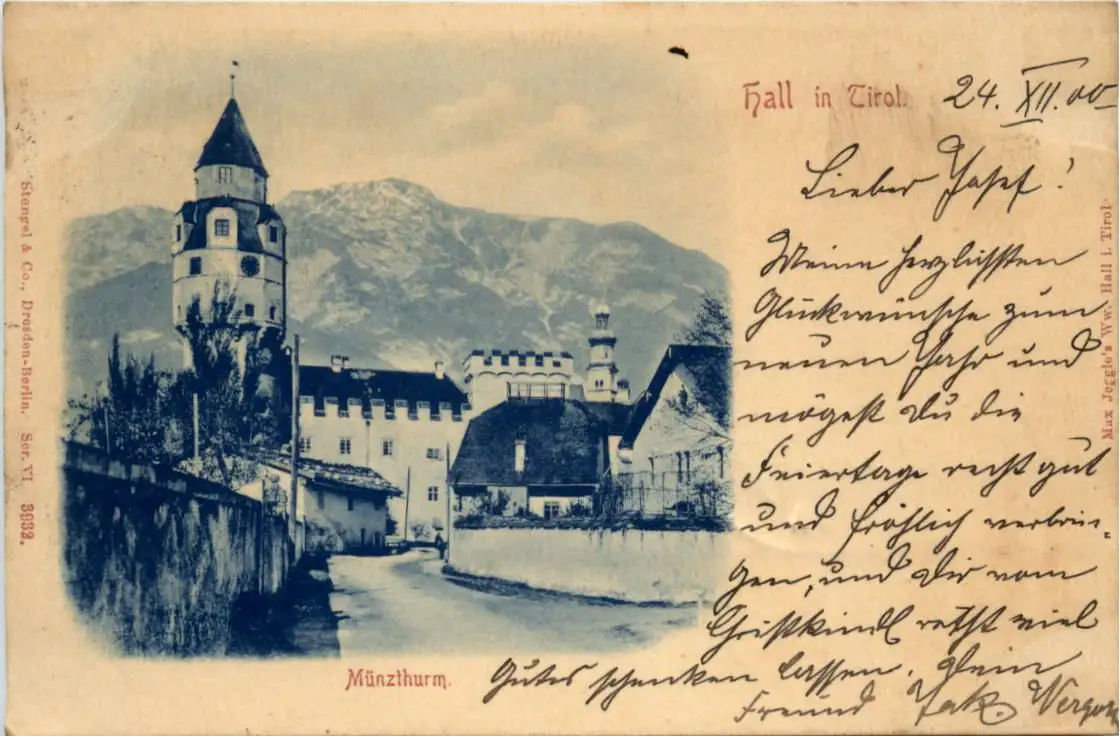 Hall in Tirol.
24. XII. 00
Lieber Josef!
Meine herzlichsten
Glückwünsche zum
neuen Jahr und
mögest Du die
Feiertage recht gut
und fröhlich verbrin„
gen, und Dir vom
Christkindl recht viel
Gutes schenken lassen. Dein
Freund Jak.
Münzthurm.
Stengel & Co., Dresden-Berlin. Ser. VI 3932.
Max Jeggle's Ww. Hall i. Tirol.